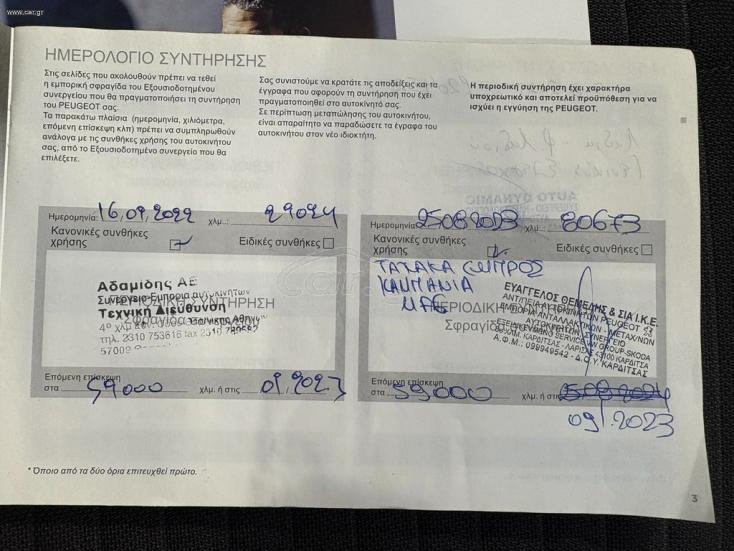 www.car.gr
ΗΜΕΡΟΛΟΓΙΟ ΣΥΝΤΗΡΗΣΗΣ
Στις σελίδες που ακολουθούν πρέπει να τεθεί
η εμπορική σφραγίδα του Εξουσιοδοτημένου
συνεργείου που θα πραγματοποιήσει τη συντήρηση
του PEUGEOT σας.
Τα παρακάτω πλαίσια (ημερομηνία, χιλιόμετρα,
επόμενη επίσκεψη κλπ) πρέπει να συμπληρωθούν
ανάλογα με τις συνθήκες χρήσης του αυτοκινήτου
σας, από το Εξουσιοδοτημένο συνεργείο που θα
επιλέξετε.
Σας συνιστούμε να κρατάτε τις αποδείξεις και τα
έγγραφα που αφορούν τη συντήρηση που έχει
πραγματοποιηθεί στο αυτοκίνητό σας.
Σε περίπτωση μεταπώλησης του αυτοκινήτου,
είναι απαραίτητο να παραδώσετε τα έγραφα του
αυτοκινήτου στον νέο ιδιοκτήτη.
Η περιοδική συντήρηση έχει χαρακτήρα
υποχρεωτικό και αποτελεί προϋπόθεση για να
ισχύει η εγγύηση της PEUGEOT.
Ημερομηνία: 16,09,2022 χλμ..: 29024
Κανονικές συνθήκες
χρήσης
Ειδικές συνθήκες
Αδαμίδης ΑΕ
Συνεργείο-Εμπορία αυτοκινήτων
Τεχνική Διεύθυνση
τηλ. 2310 753616 fax 2310
57009
Επόμενη επίσκεψη
στα 59000 χλμ. ή στις 09,2023
Ημερομηνία 25082023 χλμ 30673
Κανονικές συνθήκες
χρήσης
Ειδικές συνθήκες
ΕΥΑΓΓΕΛΟΣ ΘΕΜΕΛΗΣ & ΣΙΑ Ι.Κ.Ε.
ΠΕΡΙΟΔΙΚΗ
Σφραγίδα
Α.Φ.Μ.: 099949542 - Δ.Ο.Υ. ΚΑΡΔΙΤΣΑΣ
Επόμενη επίσκεψη
στα 59000 χλμ. ή στις
09/2023
* Όποιο από τα δύο όρια επιτευχθεί πρώτο.
3